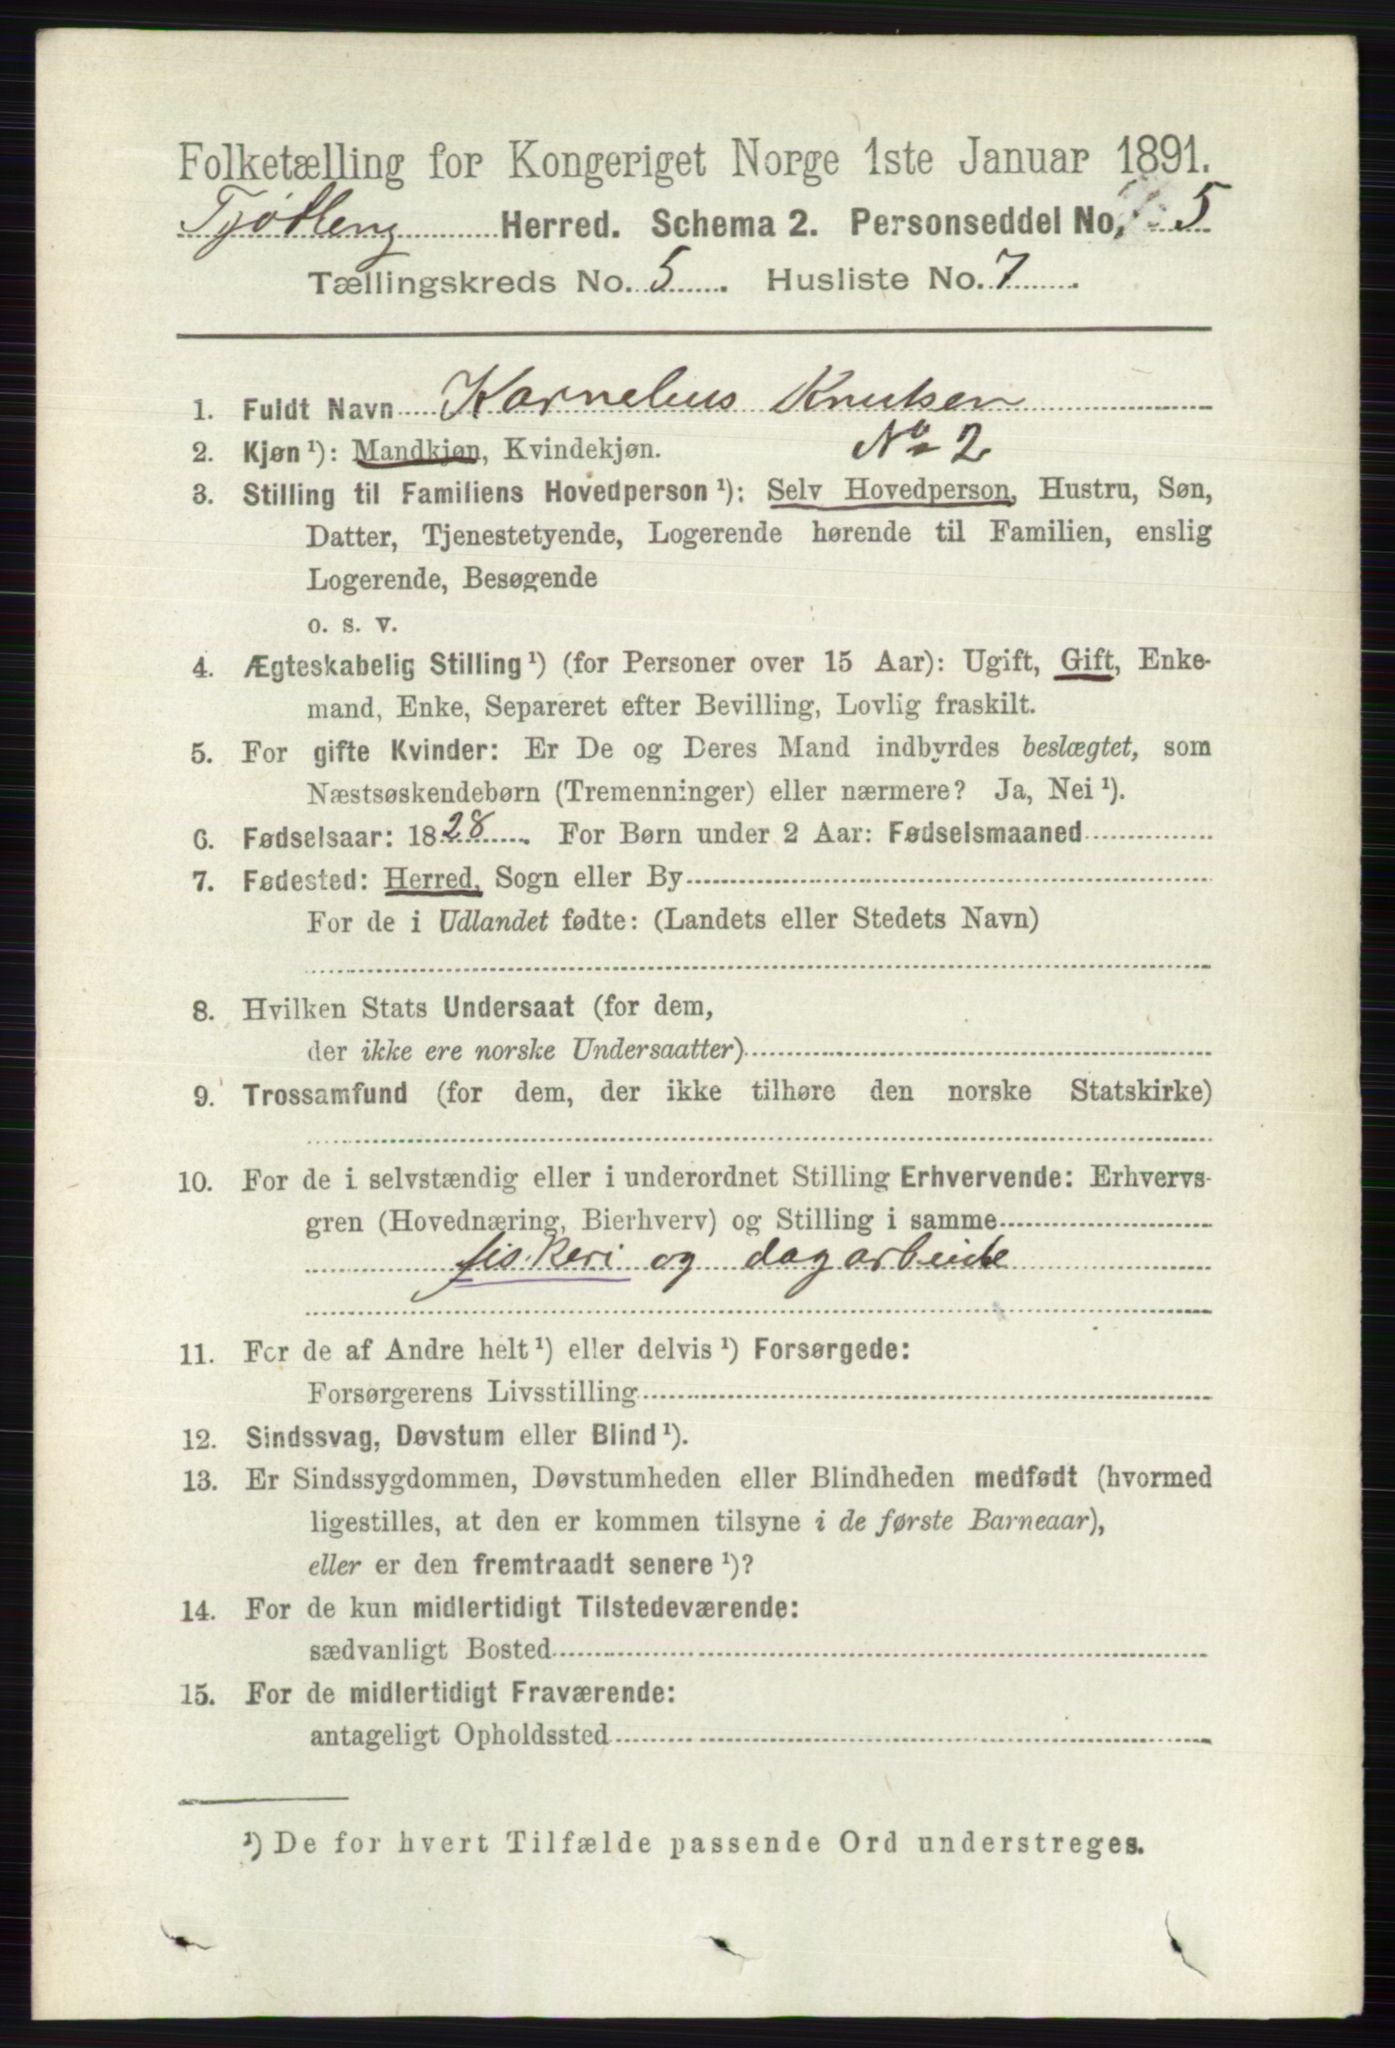 Folketælling for Kongeriget Norge 1ste Januar 1891.
Tjølling Herred. Schema 2. Personseddel No. 5
Tællingskreds No. 5. Husliste No. 7.
1. Fuldt Navn Kornelius Knutsen
2. Kjøn¹): Mandkjøn, Kvindekjøn. No 2
3. Stilling til Familiens Hovedperson¹): Selv Hovedperson, Hustru, Søn,
Datter, Tjenestetyende, Logerende hørende til Familien, enslig
Logerende, Besøgende
o. s. v.
4. Ægteskabelig Stilling¹) (for Personer over 15 Aar): Ugift, Gift, Enke-
mand, Enke, Separeret efter Bevilling, Lovlig fraskilt.
5. For gifte Kvinder: Er De og Deres Mand indbyrdes beslægtet, som
Næstsøskendebørn (Tremenninger) eller nærmere? Ja, Nei¹).
6. Fødselsaar: 1828. For Børn under 2 Aar: Fødselsmaaned
7. Fødested: Herred, Sogn eller By
For de i Udlandet fødte: (Landets eller Stedets Navn)
8. Hvilken Stats Undersaat (for dem,
der ikke ere norske Undersaatter)
9. Trossamfund (for dem, der ikke tilhøre den norske Statskirke)
10. For de i selvstændig eller i underordnet Stilling Erhvervende: Erhvervs-
gren (Hovednæring, Bierhverv) og Stilling i samme
fiskeri og dagarbeide
11. For de af Andre helt¹) eller delvis¹) Forsørgede:
Forsørgerens Livsstilling
12. Sindssvag, Døvstum eller Blind¹).
13. Er Sindssygdommen, Døvstumheden eller Blindheden medfødt (hvormed
ligestilles, at den er kommen tilsyne i de første Barneaar),
eller er den fremtraadt senere¹)?
14. For de kun midlertidigt Tilstedeværende:
sædvanligt Bosted
15. For de midlertidigt Fraværende:
antageligt Opholdssted
¹) De for hvert Tilfælde passende Ord understreges.